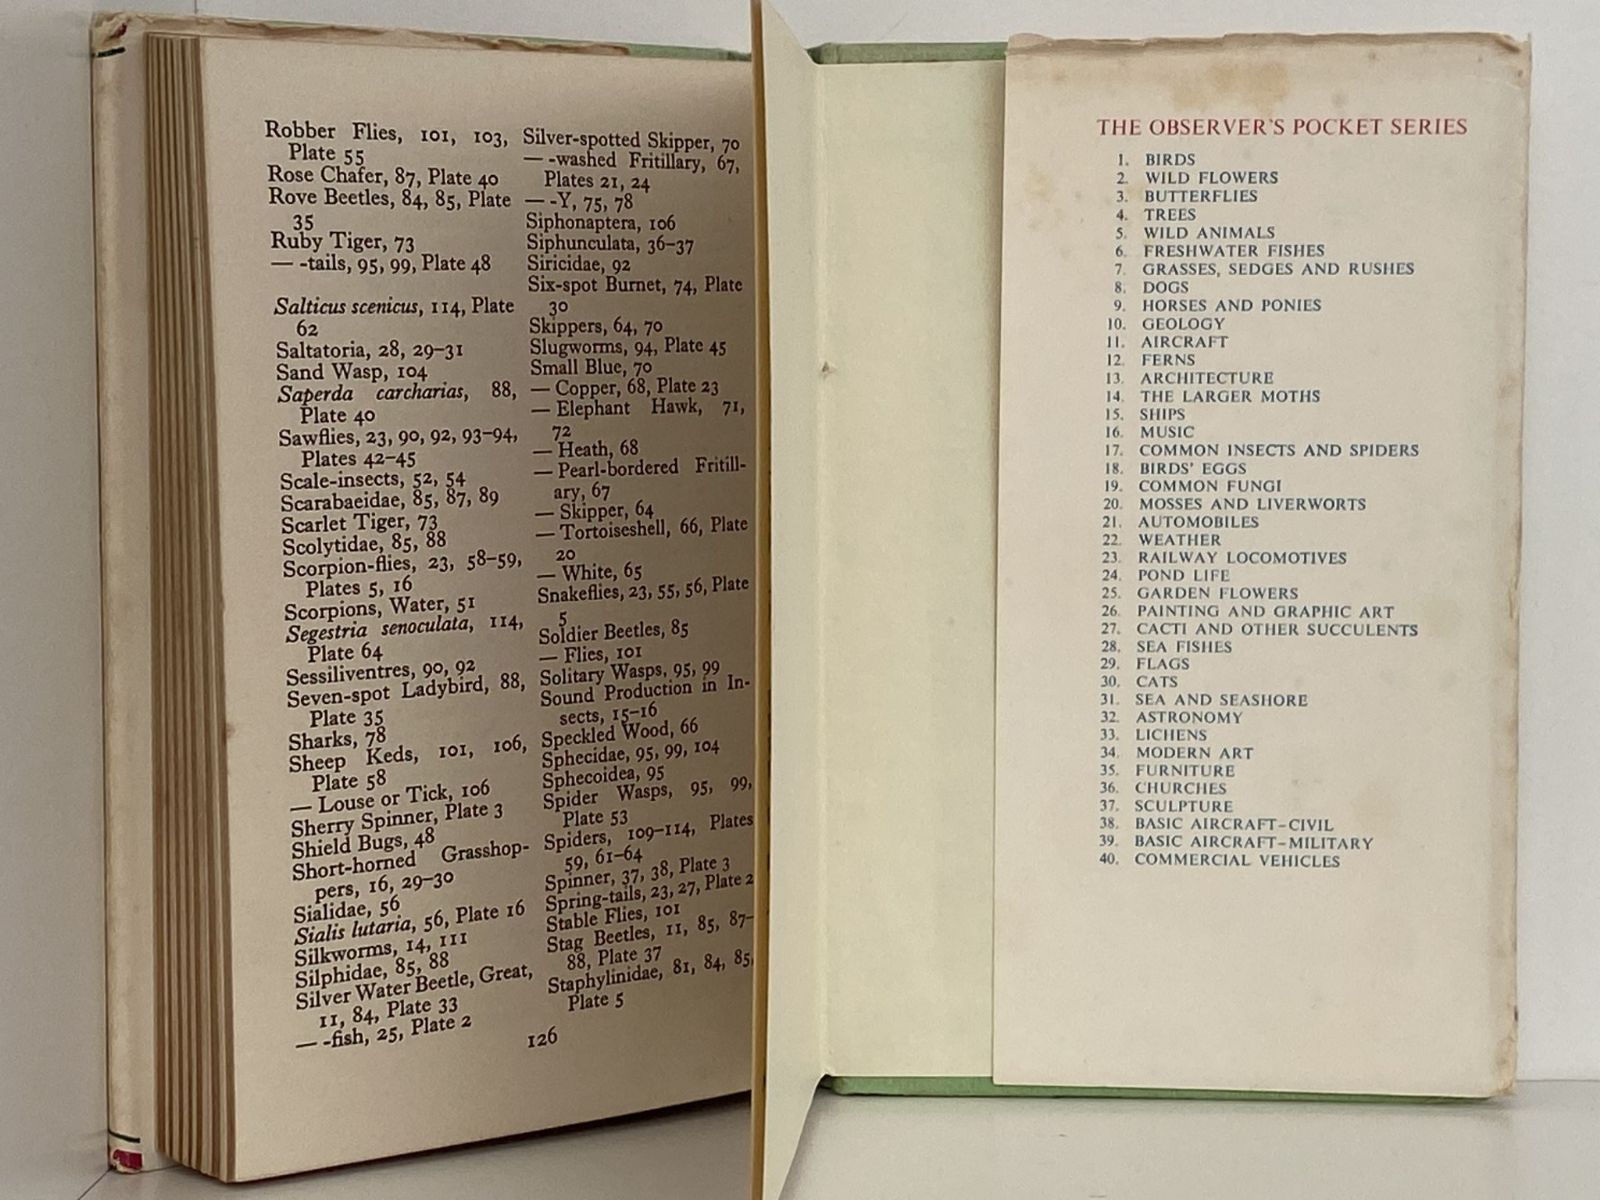 Robber Flies, 101, 103,
Plate 55
Rose Chafer, 87, Plate 40
Rove Beetles, 84, 85, Plate
35
Ruby Tiger, 73
— -tails, 95, 99, Plate 48
Salticus scenicus, 114, Plate
62
Saltatoria, 28, 29–31
Sand Wasp, 104
Saperda carcharias, 88,
Plate 40
Sawflies, 23, 90, 92, 93–94,
Plates 42–45
Scale-insects, 52, 54
Scarabaeidae, 85, 87, 89
Scarlet Tiger, 73
Scolytidae, 85, 88
Scorpion-flies, 23, 58–59,
Plates 5, 16
Scorpions, Water, 51
Segestria senoculata, 114,
Plate 64
Sessiliventres, 90, 92
Seven-spot Ladybird, 88,
Plate 35
Sharks, 78
Sheep Keds, 101, 106,
Plate 58
— Louse or Tick, 106
Sherry Spinner, Plate 3
Shield Bugs, 48
Short-horned Grasshop-
pers, 16, 29–30
Sialidae, 56
Sialis lutaria, 56, Plate 16
Silkworms, 14, 111
Silphidae, 85, 88
Silver Water Beetle, Great,
11, 84, Plate 33
— -fish, 25, Plate 2
Silver-spotted Skipper, 70
— -washed Fritillary, 67,
Plates 21, 24
— -Y, 75, 78
Siphonaptera, 106
Siphunculata, 36–37
Siricidae, 92
Six-spot Burnet, 74, Plate
30
Skippers, 64, 70
Slugworms, 94, Plate 45
Small Blue, 70
— Copper, 68, Plate 23
— Elephant Hawk, 71,
72
— Heath, 68
— Pearl-bordered Fritill-
ary, 67
— Skipper, 64
— Tortoiseshell, 66, Plate
20
— White, 65
Snakeflies, 23, 55, 56, Plate
5
Soldier Beetles, 85
— Flies, 101
Solitary Wasps, 95, 99
Sound Production in In-
sects, 15–16
Speckled Wood, 66
Sphecidae, 95, 99, 104
Sphecoidea, 95
Spider Wasps, 95, 99,
Plate 53
Spiders, 109–114, Plates
59, 61–64
Spinner, 37, 38, Plate 3
Spring-tails, 23, 27, Plate 2
Stable Flies, 101
Stag Beetles, 11, 85, 87–
88, Plate 37
Staphylinidae, 81, 84, 85,
Plate 5
126
THE OBSERVER'S POCKET SERIES
1. BIRDS
2. WILD FLOWERS
3. BUTTERFLIES
4. TREES
5. WILD ANIMALS
6. FRESHWATER FISHES
7. GRASSES, SEDGES AND RUSHES
8. DOGS
9. HORSES AND PONIES
10. GEOLOGY
11. AIRCRAFT
12. FERNS
13. ARCHITECTURE
14. THE LARGER MOTHS
15. SHIPS
16. MUSIC
17. COMMON INSECTS AND SPIDERS
18. BIRDS' EGGS
19. COMMON FUNGI
20. MOSSES AND LIVERWORTS
21. AUTOMOBILES
22. WEATHER
23. RAILWAY LOCOMOTIVES
24. POND LIFE
25. GARDEN FLOWERS
26. PAINTING AND GRAPHIC ART
27. CACTI AND OTHER SUCCULENTS
28. SEA FISHES
29. FLAGS
30. CATS
31. SEA AND SEASHORE
32. ASTRONOMY
33. LICHENS
34. MODERN ART
35. FURNITURE
36. CHURCHES
37. SCULPTURE
38. BASIC AIRCRAFT–CIVIL
39. BASIC AIRCRAFT–MILITARY
40. COMMERCIAL VEHICLES